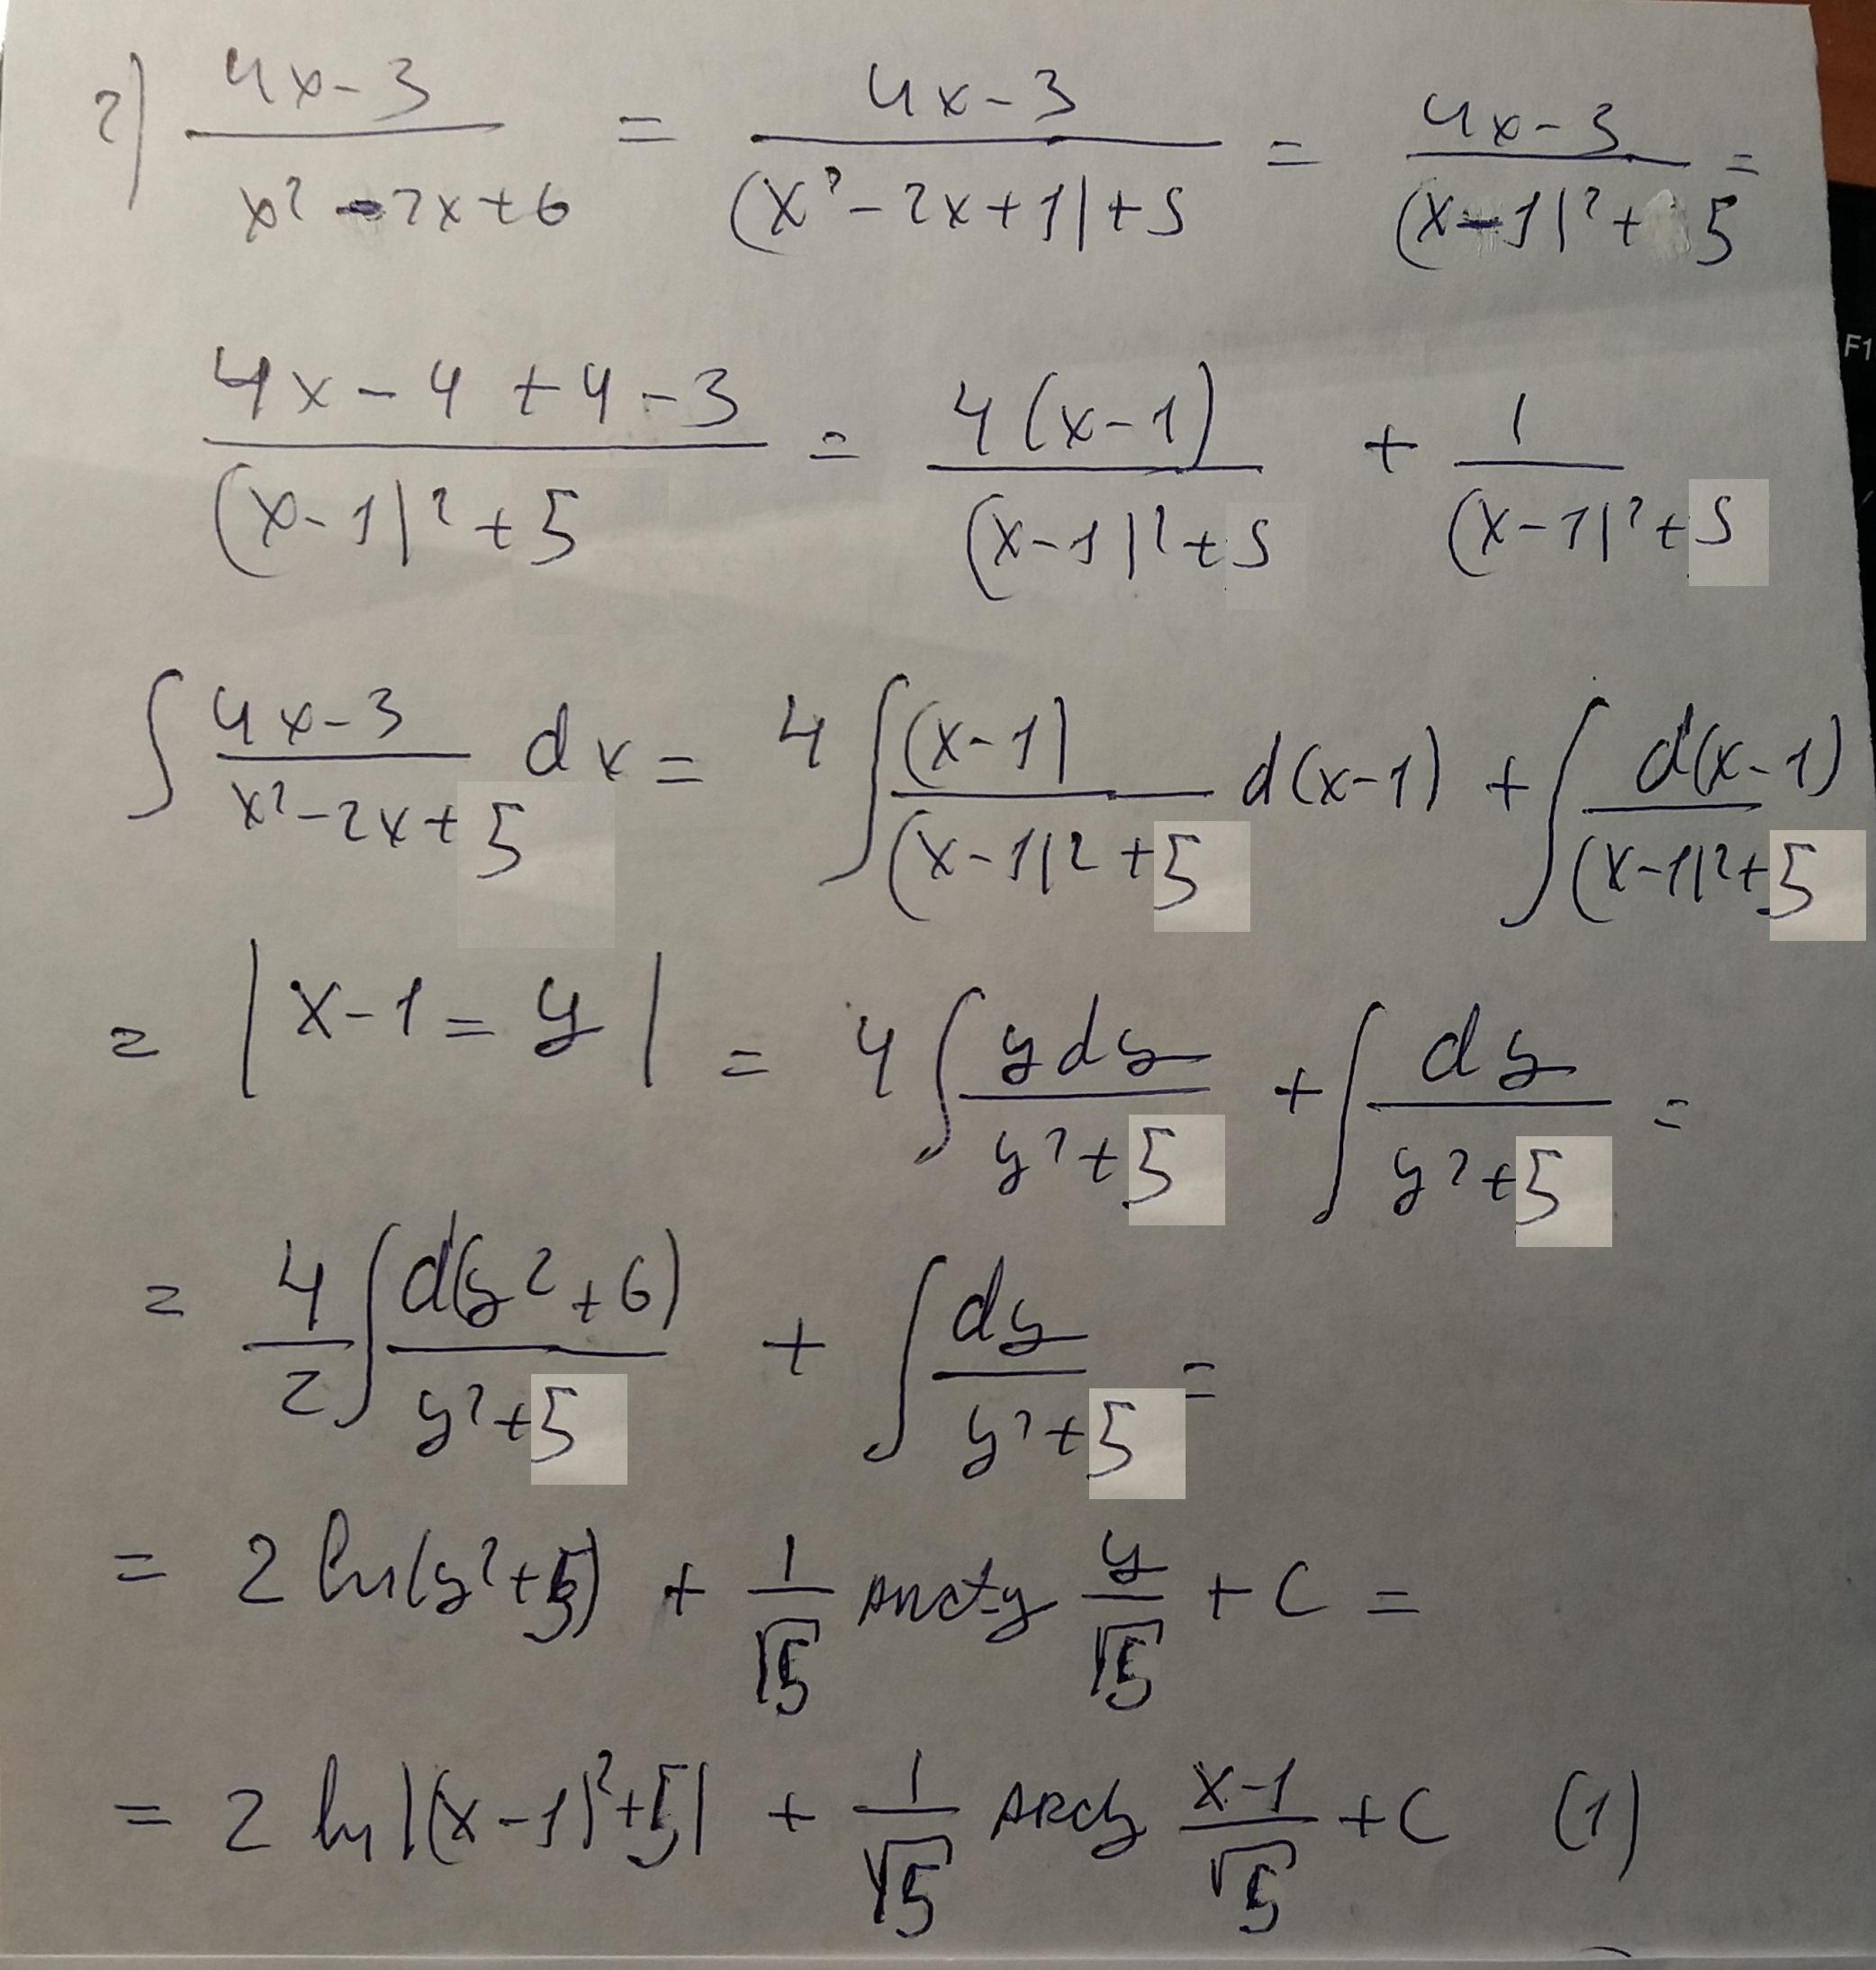 г) (4x-3)/(x²-2x+6) = (4x-3)/((x²-2x+1)+5) = (4x-3)/((x-1)²+5) =
(4x-4+4-3)/((x-1)²+5) = 4(x-1)/((x-1)²+5) + 1/((x-1)²+5)
F1
∫ (4x-3)/(x²-2x+5) dx = 4 ∫ (x-1)/((x-1)²+5) d(x-1) + ∫ d(x-1)/((x-1)²+5)
= |x-1=y| = 4 ∫ ydy/(y²+5) + ∫ dy/(y²+5) =
= 4/2 ∫ d(y²+6)/(y²+5) + ∫ dy/(y²+5) =
= 2 ln(y²+5) + 1/√5 arctg y/√5 + C =
= 2 ln|(x-1)²+5| + 1/√5 arctg (x-1)/√5 + C (1)